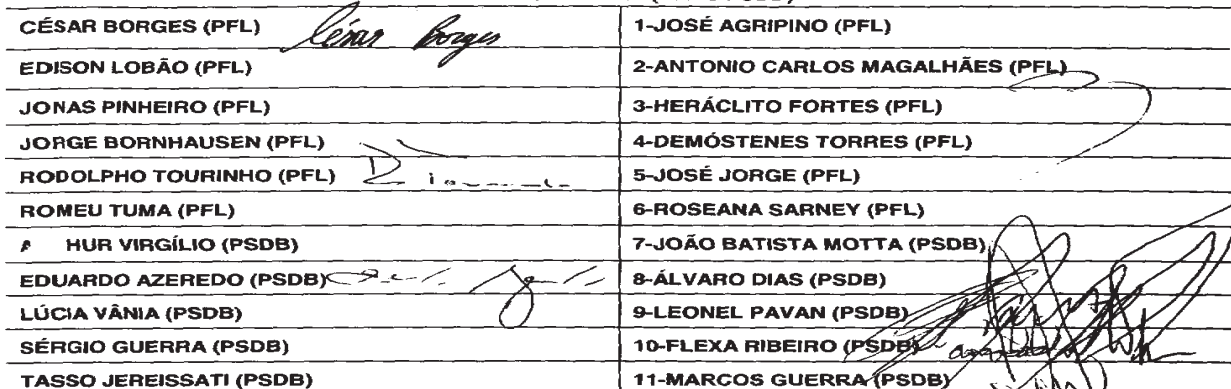 CÉSAR BORGES (PFL) César Borges 1-JOSÉ AGRIPINO (PFL)
EDISON LOBÃO (PFL) 2-ANTONIO CARLOS MAGALHÃES (PFL)
JONAS PINHEIRO (PFL) 3-HERÁCLITO FORTES (PFL)
JORGE BORNHAUSEN (PFL) 4-DEMÓSTENES TORRES (PFL)
RODOLPHO TOURINHO (PFL) 5-JOSÉ JORGE (PFL)
ROMEU TUMA (PFL) 6-ROSEANA SARNEY (PFL)
HUR VIRGÍLIO (PSDB) 7-JOÃO BATISTA MOTTA (PSDB)
EDUARDO AZEREDO (PSDB) 8-ÁLVARO DIAS (PSDB)
LÚCIA VÂNIA (PSDB) 9-LEONEL PAVAN (PSDB)
SÉRGIO GUERRA (PSDB) 10-FLEXA RIBEIRO (PSDB)
TASSO JEREISSATI (PSDB) 11-MARCOS GUERRA (PSDB)